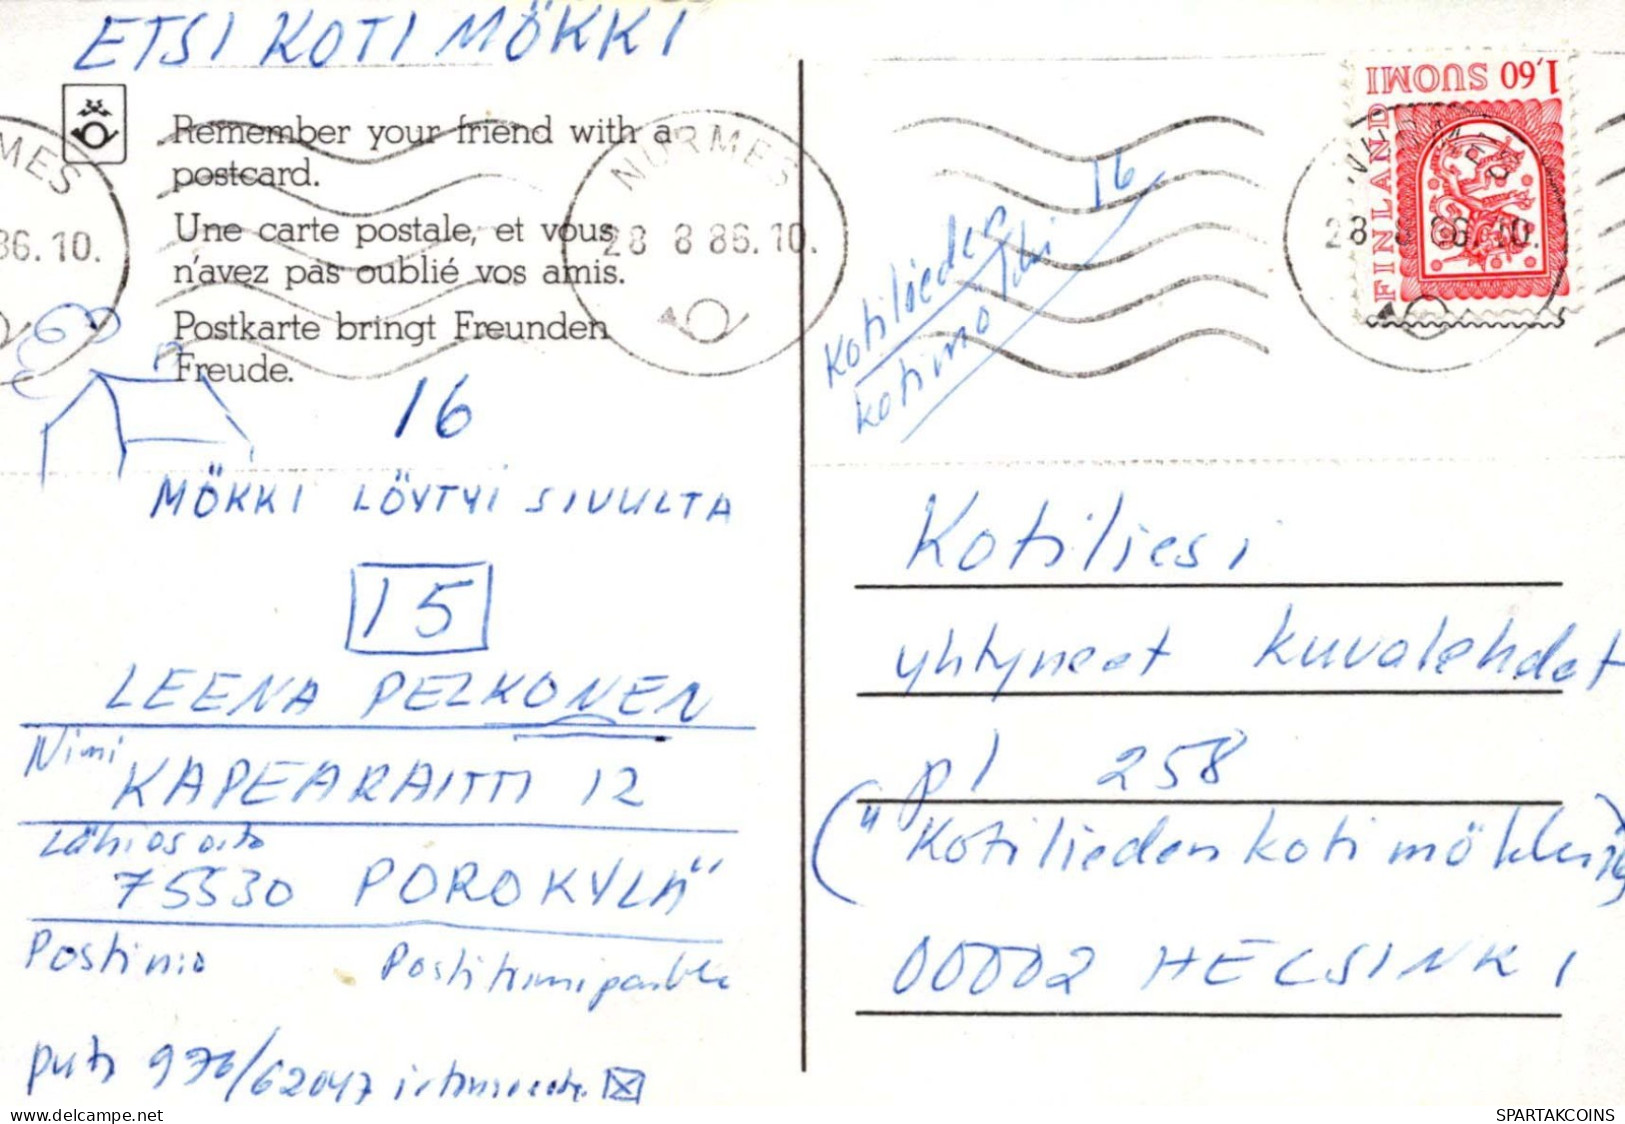 ETSI KOTI MÖKKI
Remember your friend with a
postcard.
Une carte postale, et vous
n'avez pas oublié vos amis.
Postkarte bringt Freunden
Freude.
MES
86.10.
NURMES
28 8 86.10.
16
MÖKKI LÖYTYI SIVULTA
15
LEENA PELKONEN
Nimi
KAPEARAITTI 12
Lähiosoite
75530 POROKYLÄ
Postinro Postitoimipaikka
puh 976/62047
16
Kotilieden
kotimö
1,60 SUOMI
FINLAND
NURMES
28. 8 86.10.
Kotiliesi
yhtyneet kuvalehdet
pl 258
("Kotilieden koti mökki )
00002 HELSINKI
SPARTAKCOINS